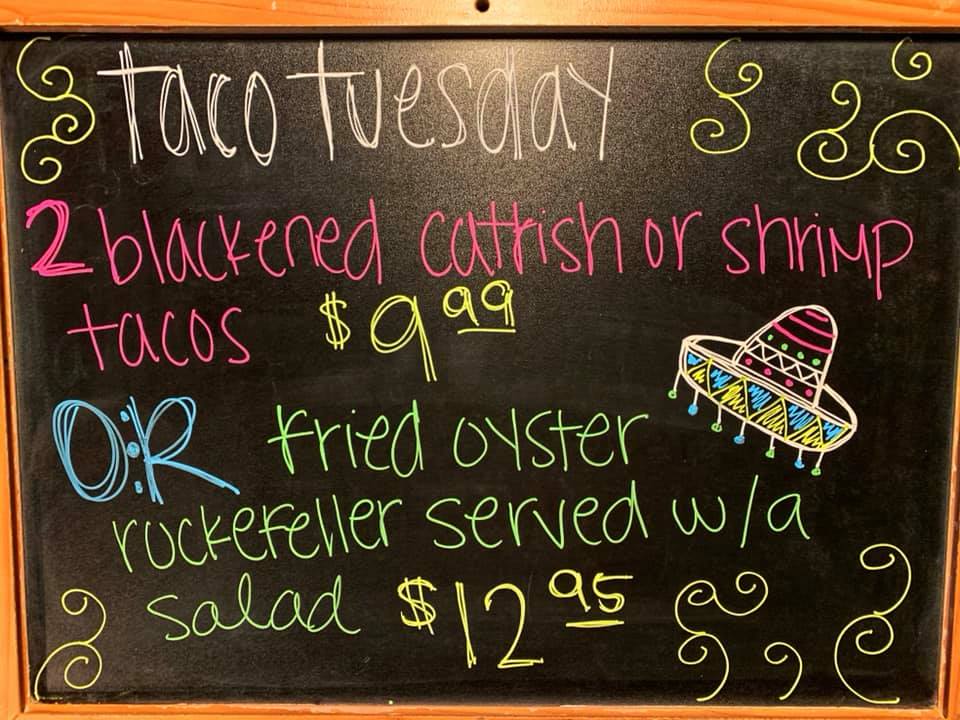 taco tuesday
2 blackened catfish or shrimp
tacos $9 99
O:R fried oyster
rockefeller served w/a
salad $12 95